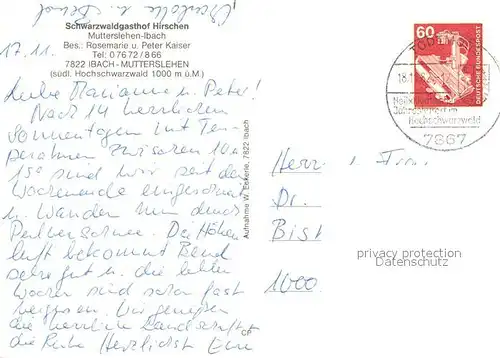 Schwarzwaldgasthof Hirschen
Mutterslehen-Ibach
Bes.: Rosemarie u. Peter Kaiser
Tel: 0 76 72 / 8 66
7822 IBACH - MUTTERSLEHEN
(südl. Hochschwarzwald 1000 m ü.M.)
17.11.
Liebe Marianne u. Peter!
Nach 14 herrlichen
Sonnentagen mit Tem-
peraturen zwischen 10 u.
15° sind wir seit dem
Wochenende eingeschneit
u. wandern nun durch
Pulverschnee. Die Höhen-
luft bekommt Bernd
sehr gut u. die letzten
Wochen sind schon fast
vergessen. Wir genießen
die herrliche Landschaft
die Ruhe Herzlichst Eure
Charlotte u. Bernd
Aufnahme W. Eckerle, 7822 Ibach
CP
60
DEUTSCHE BUNDESPOST
TODT
18.1
Heilk
Jahres
Hochschwarzwald
7867
Herr u. Frau
Dr.
Bist
1000
privacy protection
Datenschutz